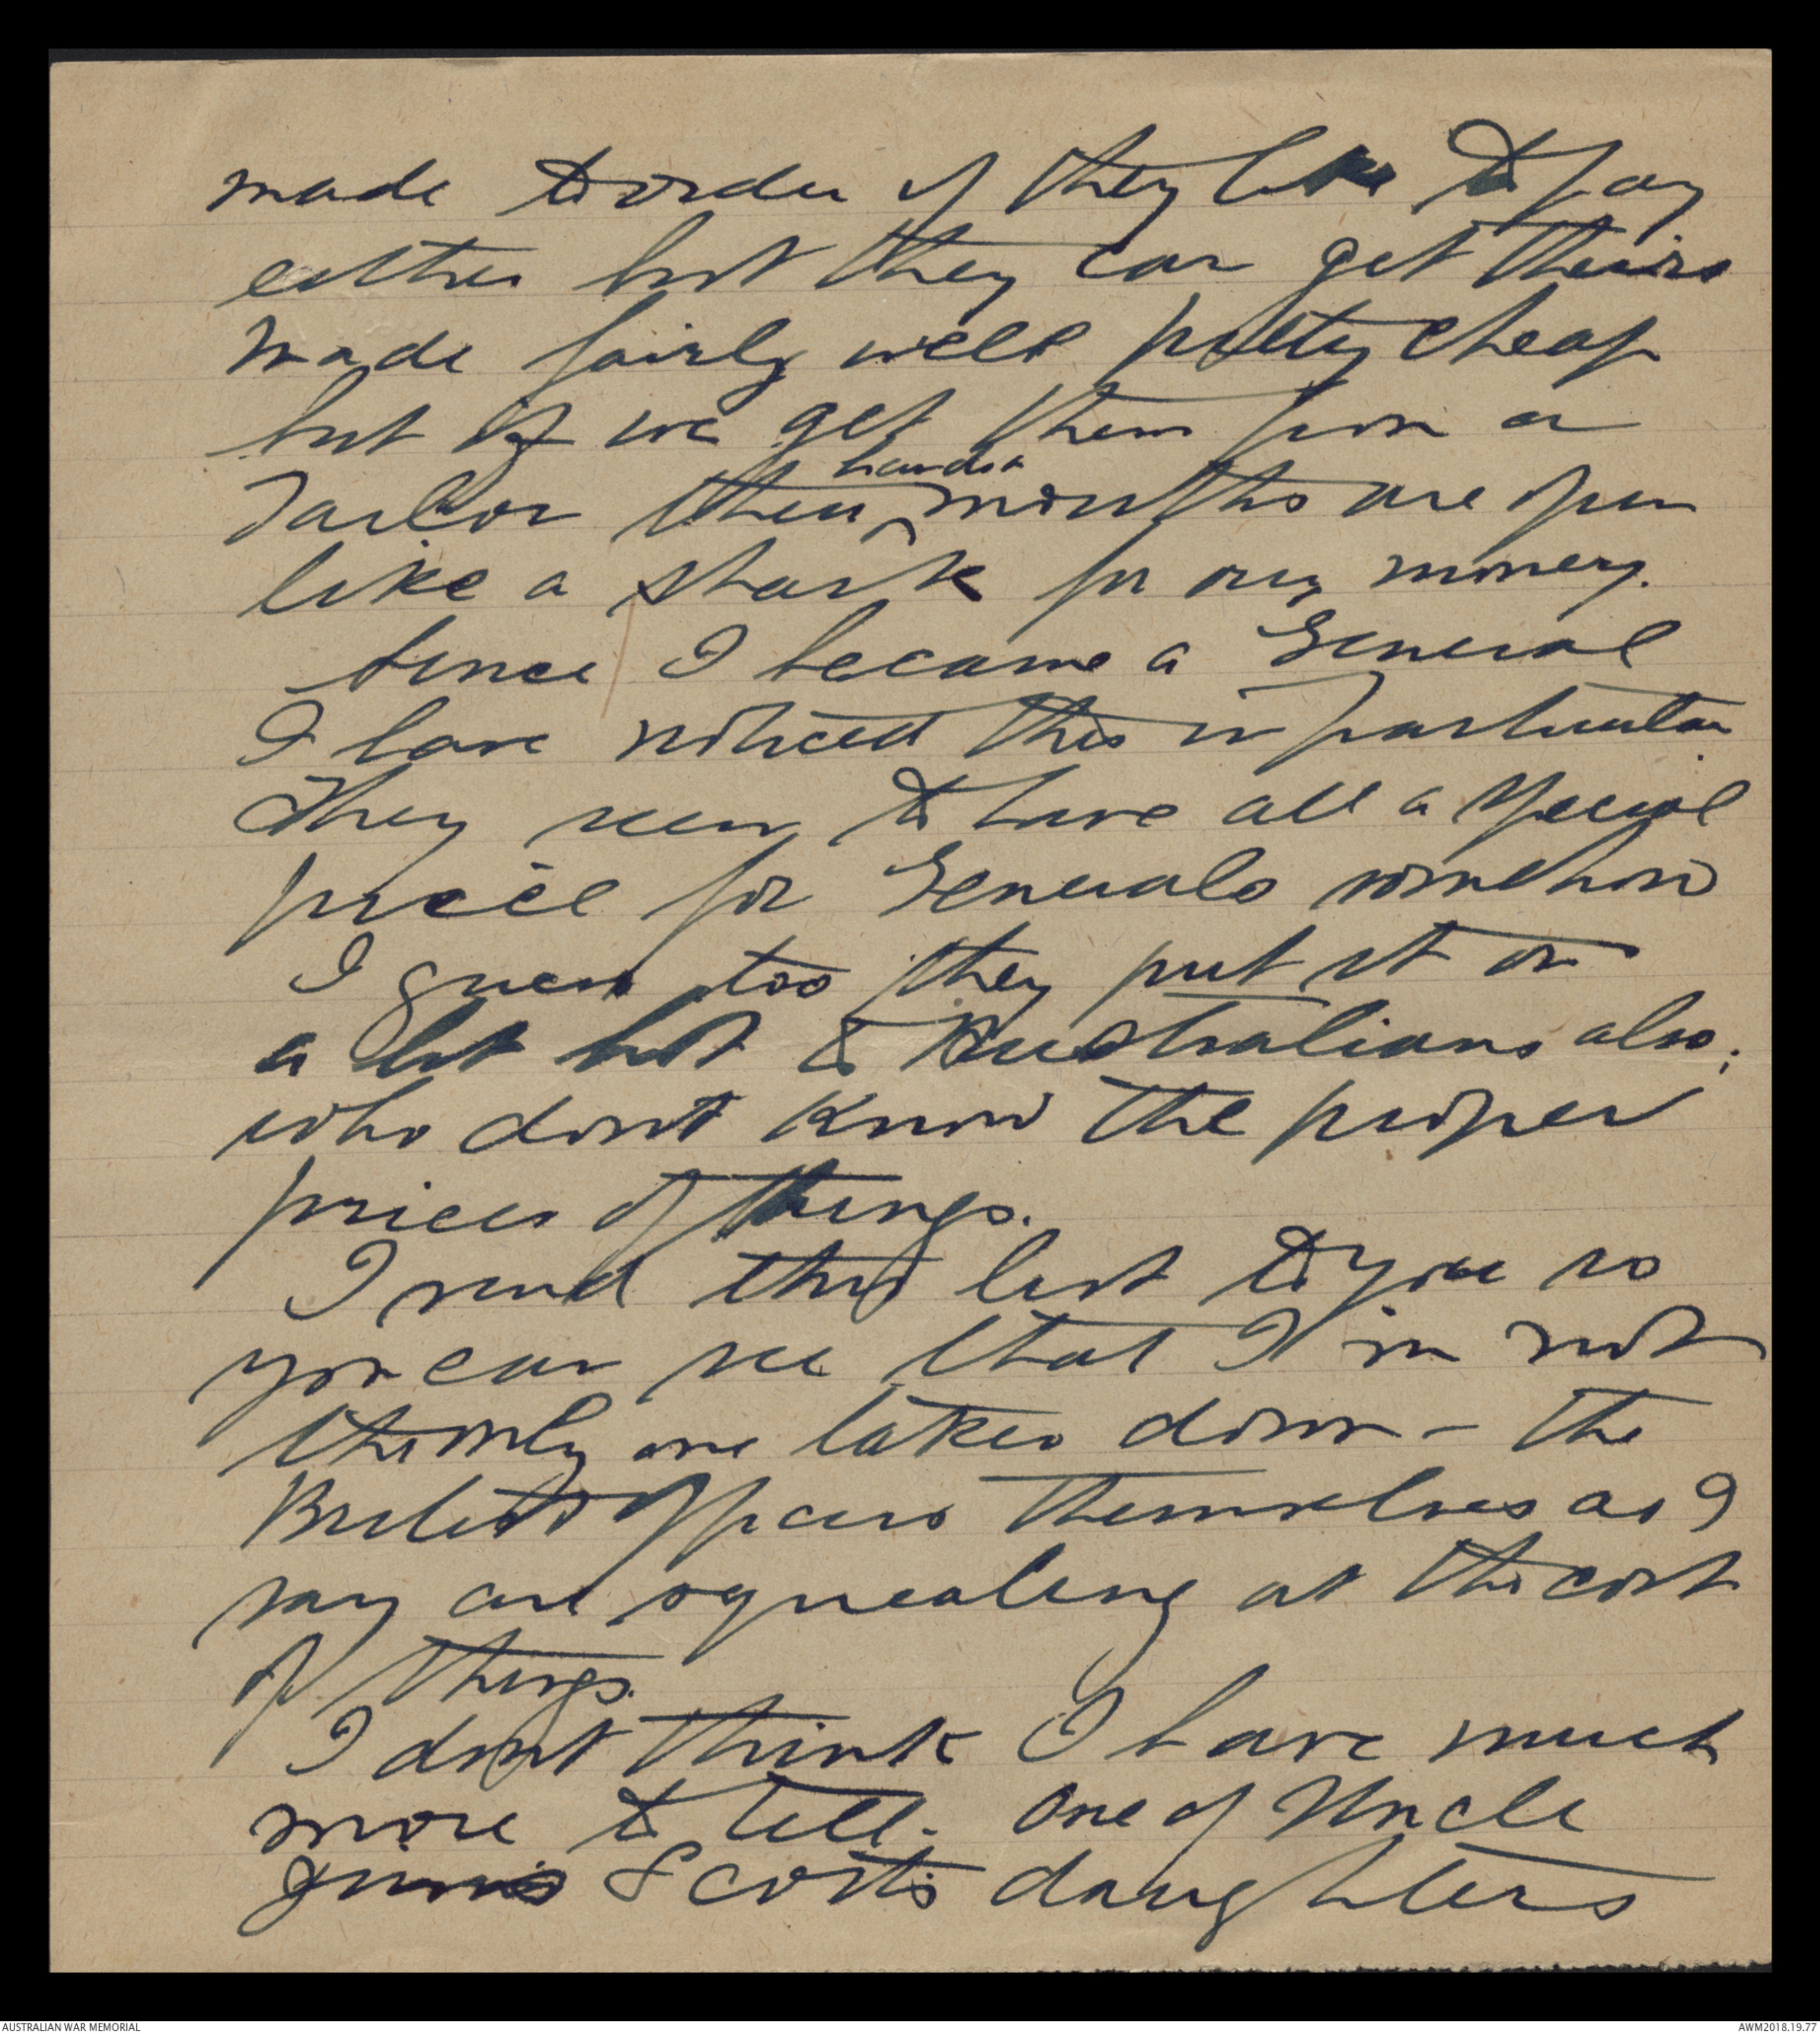 made to order if they like to pay
either but they can get theirs
made fairly well pretty cheap
but if we get them from a
hands &
Tailor their mouths are open
like a shark for our money.
Since I became a General
I have noticed this in particular
They seem to have all a special
price for Generals somehow
I guess too they put it on
a bit hot to Australians also;
who dont know the proper
prices of things.
I send this list to you so
you can see that I'm not
the only one taken down - the
British Officers themselves as I
say are squealing at the cost
of things.
I dont think I have much
more to tell. One of Uncle
Jimmie Scott's daughters
AUSTRALIAN WAR MEMORIAL
AWM2018.19.77